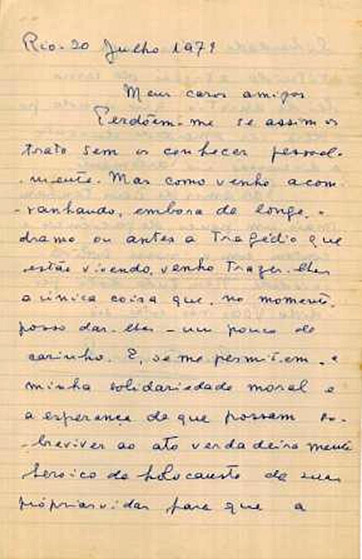 Rio - 20 Julho 1979
Meus caros amigos
Perdôem-me se assim os
trato sem os conhecer pessoal-
-mente. Mas como venho acom-
-panhando, embora de longe, o
drama ou antes a tragédia que
estão vivendo, venho trazer-lhes
a única coisa que, no momento,
posso dar-lhes - um pouco de
carinho. E, se me permitem, a
minha solidariedade moral e
a esperança de que possam so-
-breviver ao ato verdadeiramente
heroico do holocausto de suas
próprias vidas para que a